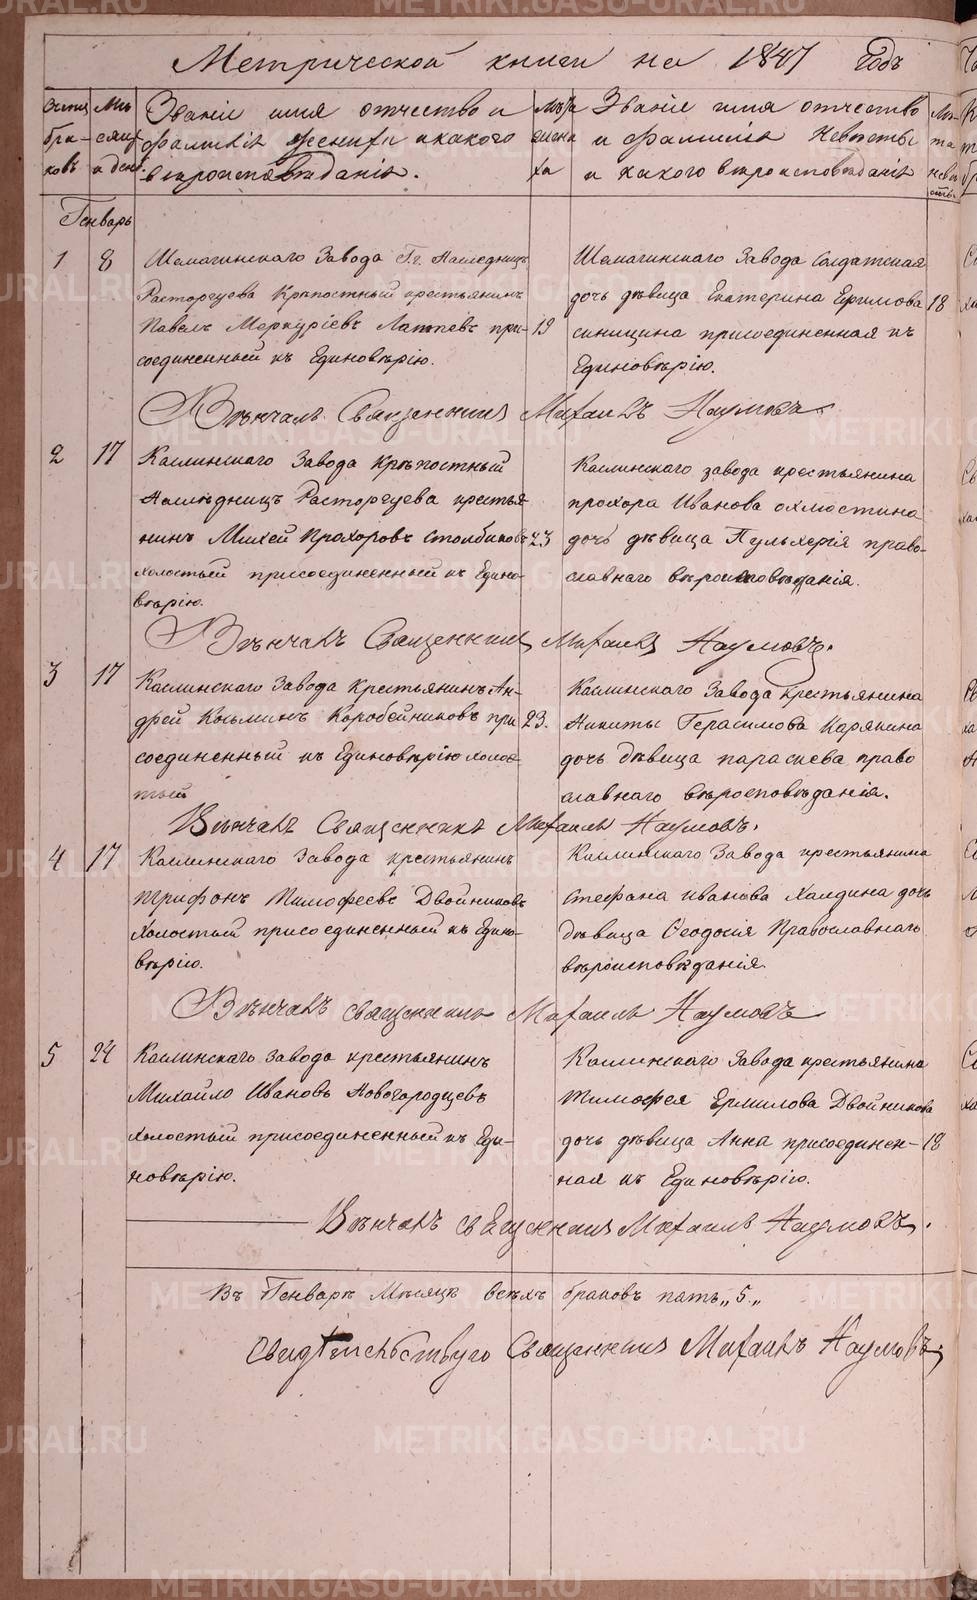 Метрической книги на 1847 Годъ
Счетъ бра- ковъ
Мѣ- сяцъ и день
Званіе имя отчество и фамилія жениха и какого вѣроисповѣданія.
Лѣта жениха
Званіе имя отчество и фамилія Невѣсты и какого вѣроисповѣданія
Лѣ- та невѣсты
Генварь
1 8 Шемагинскаго Завода Г.г. Наслѣдницъ
Расторгуева Крѣпостный крестьянинъ
Павелъ Меркуріевъ Лаптевъ при- 19
соединенный къ Единовѣрію.
Шемагинскаго Завода Солдатская
дочь дѣвица Екатерина Ефимова 18
синицина присоединенная къ
Единовѣрію.
Вѣнчалъ Священникъ Михаилъ Наумовъ
2 17 Каслинскаго Завода Крѣпостный
Наслѣдницъ Расторгуева крестья-
нинъ Михей Прохоровъ Столбиковъ 23
холостый присоединенный къ Едино-
вѣрію.
Каслинскаго завода крестьянина
прохора Иванова охлюстина
дочь дѣвица Пульхерія право-
славнаго вѣроисповѣданія.
Вѣнчалъ Священникъ Михаилъ Наумовъ.
3 17 Каслинскаго Завода Крестьянинъ Ан-
дрей Козьминъ Коробейниковъ при 23.
соединенный къ Единовѣрію холос-
тый
Каслинскаго Завода Крестьянина
Никиты Герасимова Карякина
дочь дѣвица параскева право
славнаго вѣроисповѣданія.
Вѣнчалъ Священникъ Михаилъ Наумовъ.
4 17 Каслинскаго Завода крестьянинъ
Трифонъ Тимофеевъ Двойниковъ
холостый присоединенный къ Едино-
вѣрію.
Каслинскаго Завода крестьянина
Стефана иванова Халдина дочь
дѣвица Феодосія Православнаго
вѣроисповѣданія
Вѣнчалъ священникъ Михаилъ Наумовъ
5 24 Каслинскаго Завода крестьянинъ
Михайло Ивановъ Новогородцевъ
холостый присоединенный къ Еди-
новѣрію.
Каслинскаго Завода крестьянина
Тимофея Ермилова Двойникова
дочь дѣвица Анна присоединен- 18
ная къ Единовѣрію.
Вѣнчалъ священникъ Михаилъ Наумовъ.
Въ Генварѣ Мѣсяцѣ всѣхъ браковъ пять „5„
Свидѣтельствую Священникъ Михаилъ Наумовъ
METRIKI.GASO-URAL.RU